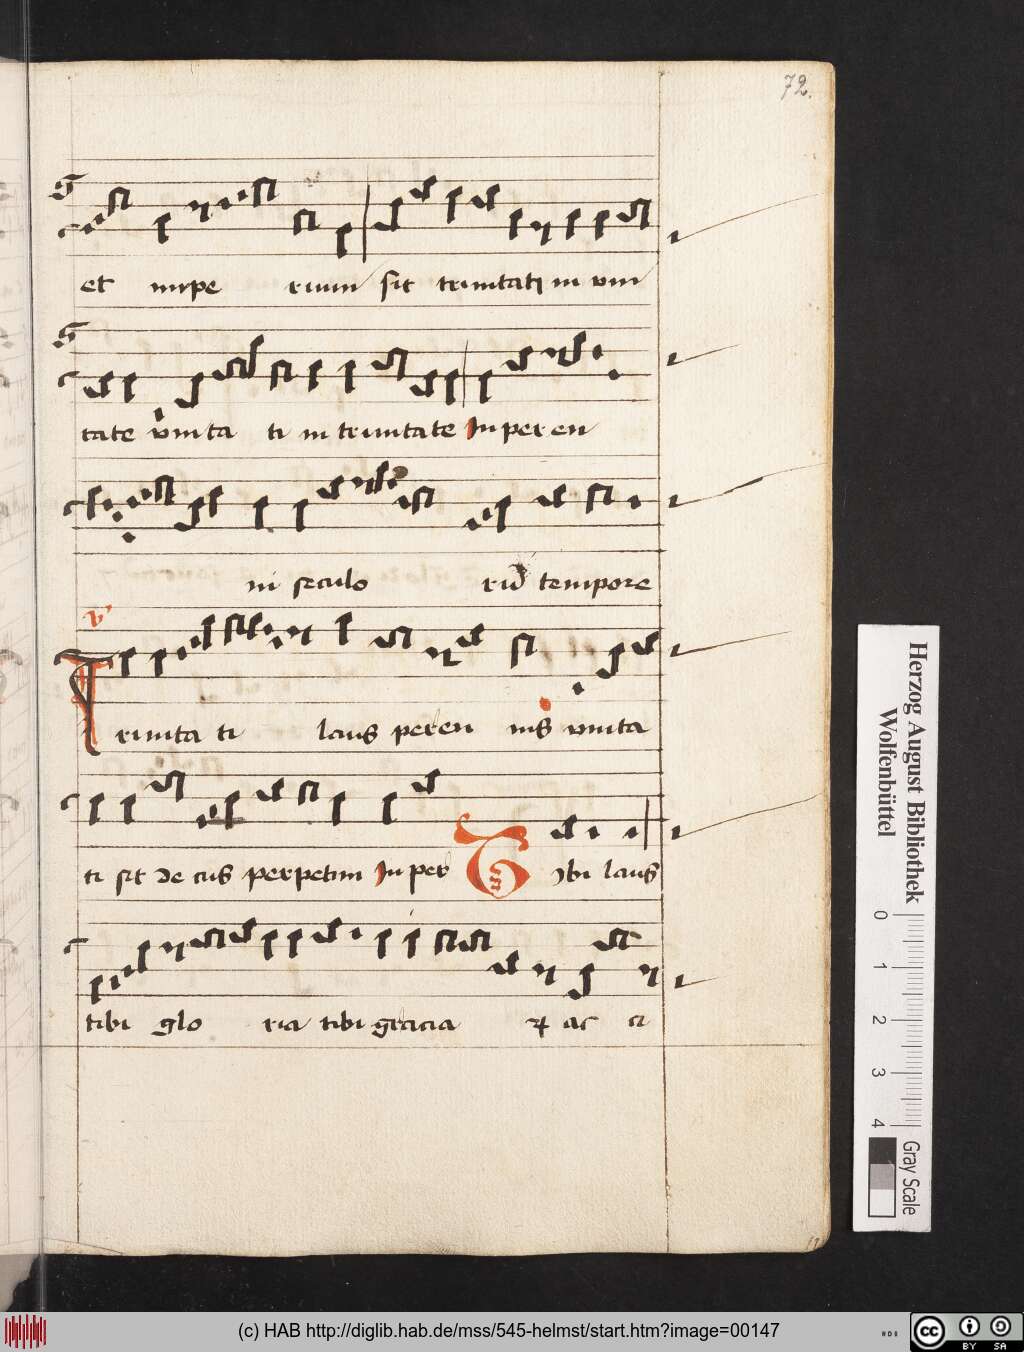 72.
et impe rium sit trinitati in uni
tate unita ti in trinitate In peren
ni seculo rū tempore
V
Trinita ti laus peren nis unita
ti sit de cus perpetim In per Tibi laus
tibi glo ria tibi gracia ꝛ ac ci
Herzog August Bibliothek
Wolfenbüttel
0 1 2 3 4
Gray Scale
(c) HAB http://diglib.hab.de/mss/545-helmst/start.htm?image=00147
cc BY SA